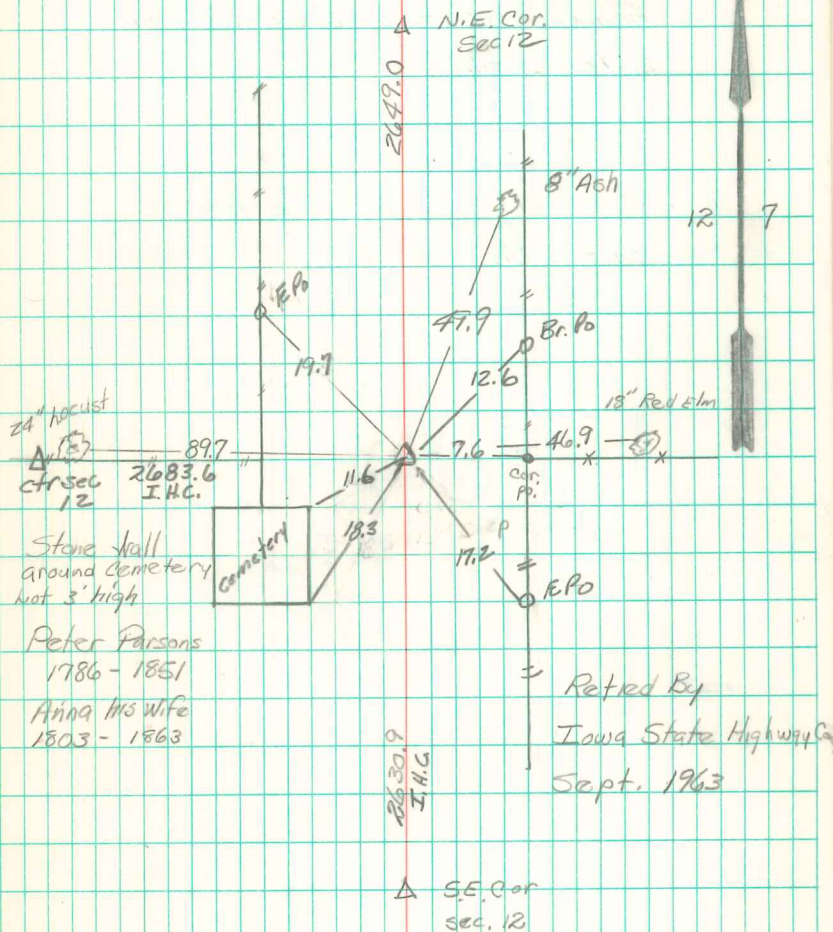 N.E. Cor.
Sec 12
2649.0
8" Ash
12 7
E Po
47.9
Br. Po
19.7
12.6
24" Locust
18" Red Elm
89.7
7.6
46.9
ctr sec
12
2683.6
I.H.C.
11.6
Cor.
Po.
Cemetery
18.3
17.2
Stone Wall
around Cemetery
not 3' high
E Po
Peter Parsons
1786 - 1851
Anna his Wife
1803 - 1863
Retied By
Iowa State Highway
Sept. 1963
2630.9
I.H.C.
S.E. Cor
sec. 12